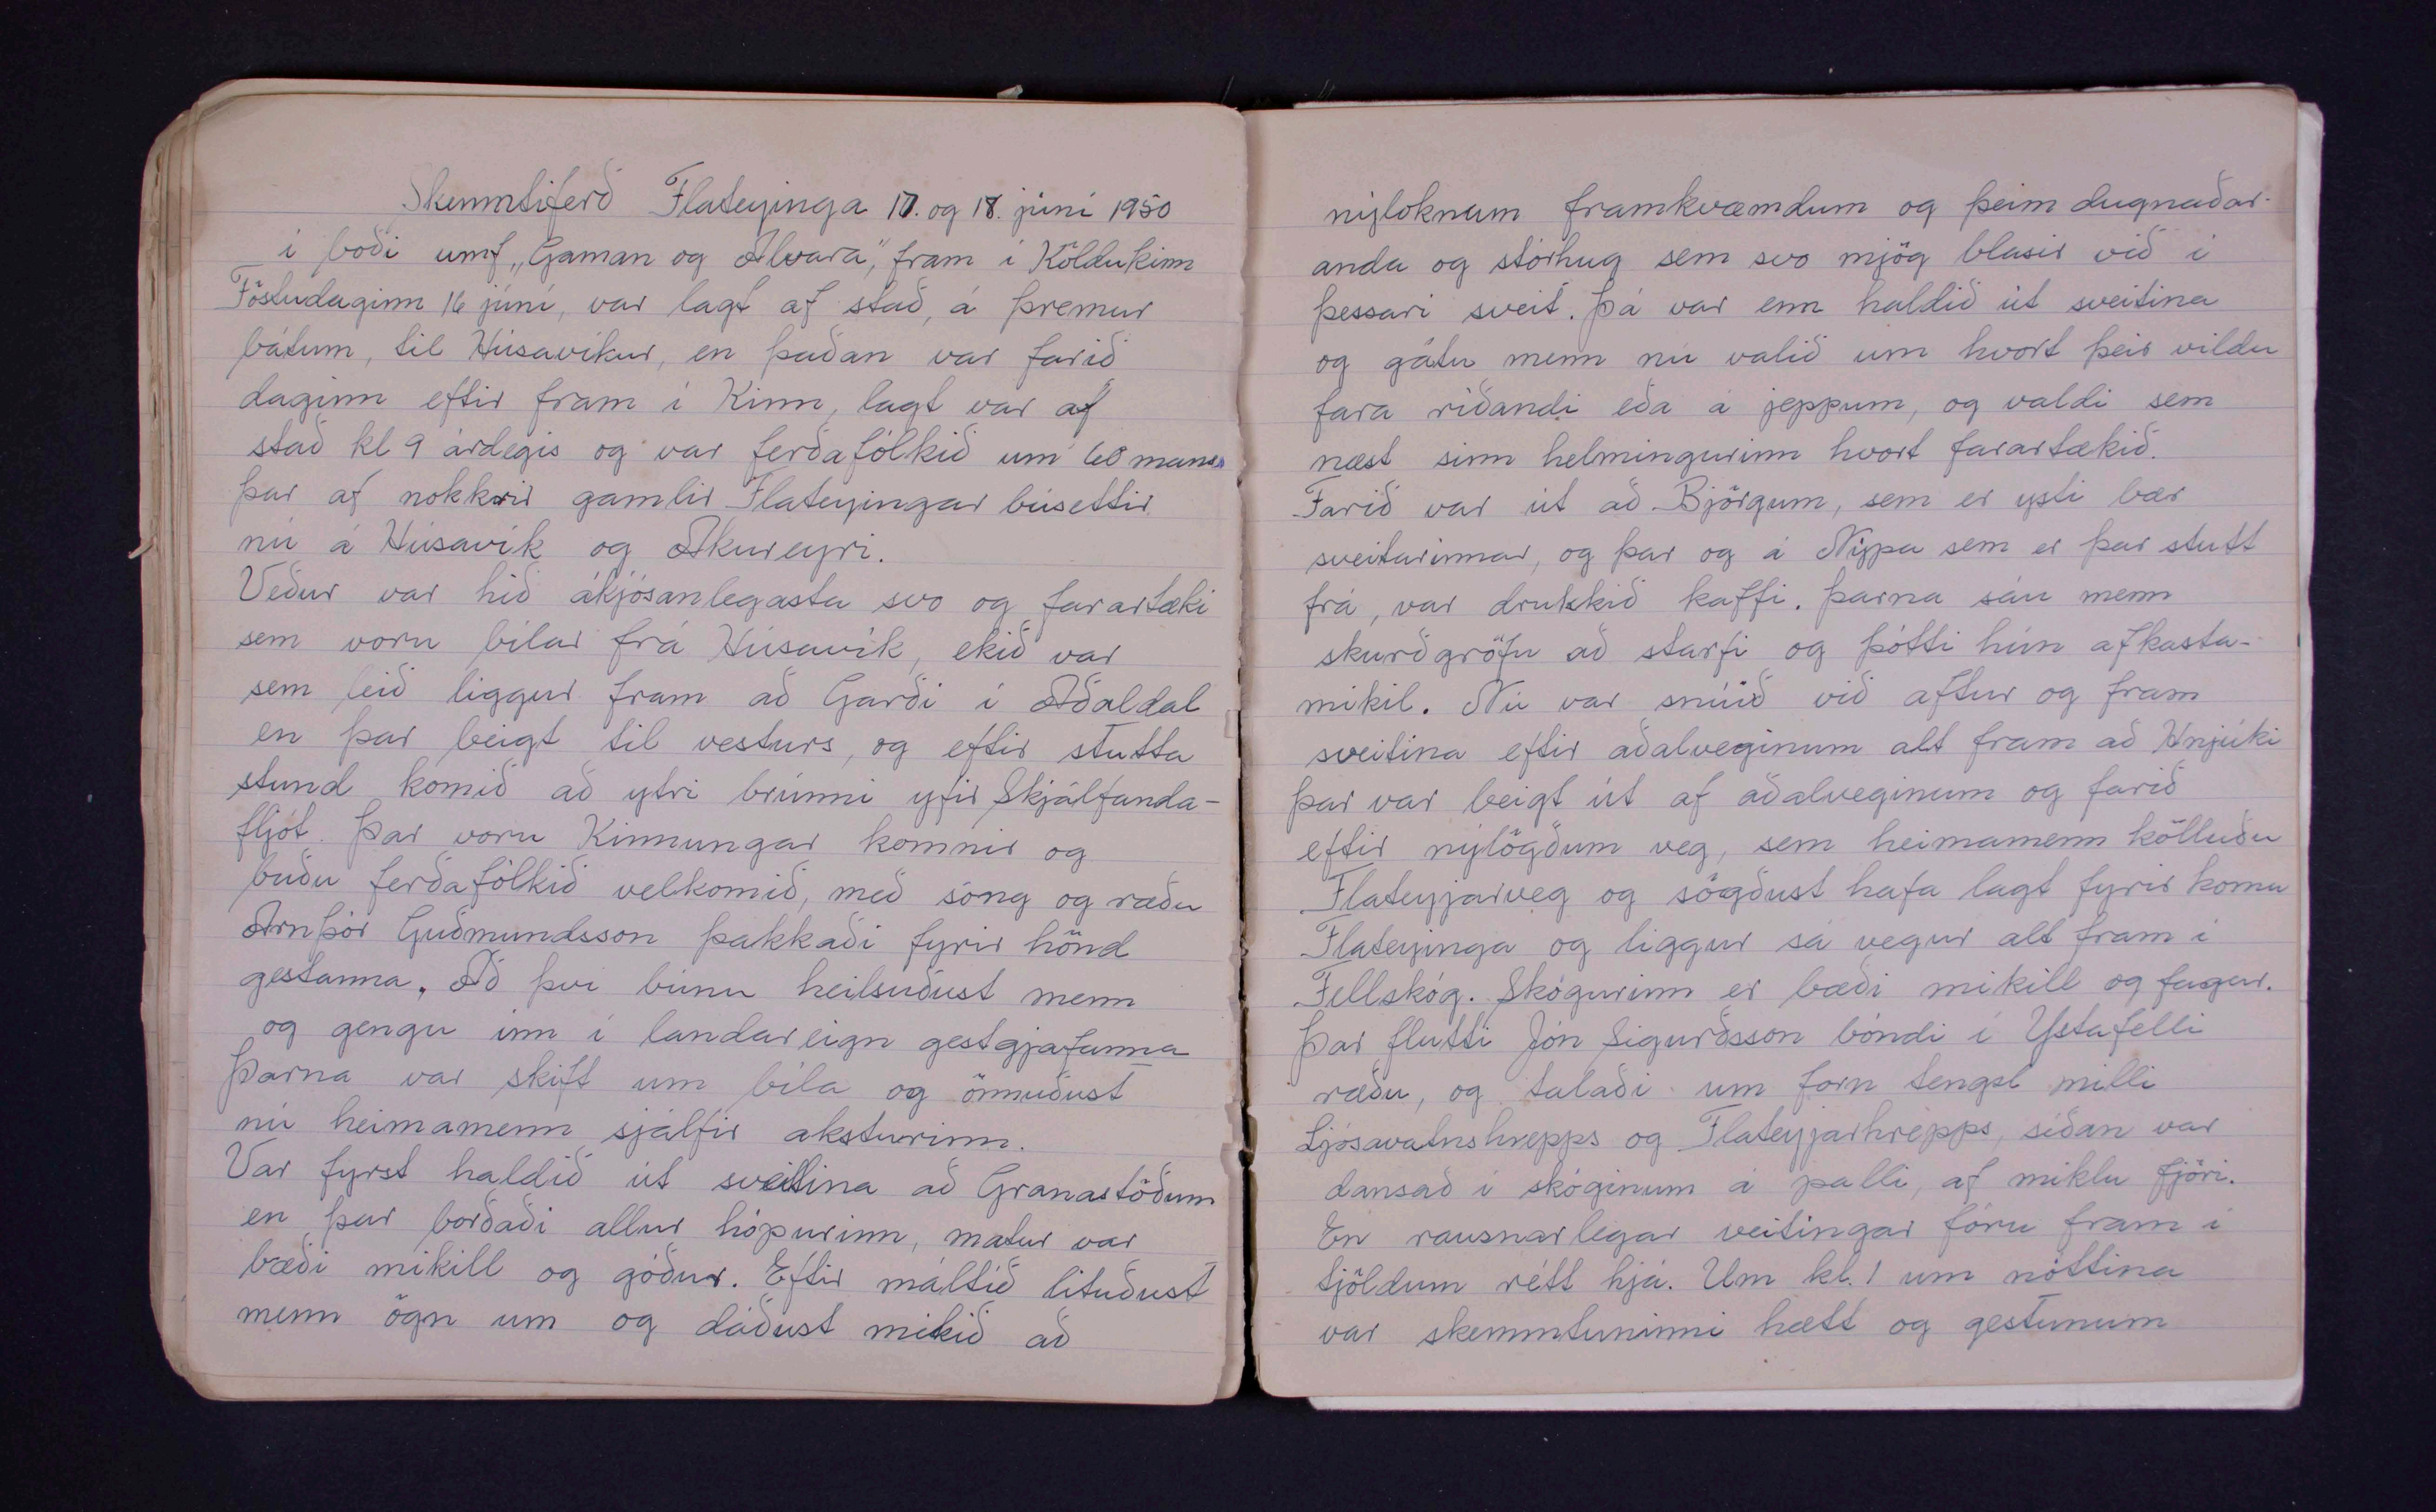 Skemmtiferð Flateyinga 17. og 18. júní 1950
í boði umf „Gaman og Alvara", fram í Köldukinn
Föstudaginn 16 júní, var lagt af stað, á þremur
bátum, til Húsavíkur, en þaðan var farið
daginn eftir fram í Kinn, lagt var af
stað kl 9 árdegis og var ferðafólkið um 60 manns
þar af nokkrir gamlir Flateyingar búsettir
nú á Húsavík og Akureyri.
Veður var hið ákjósanlegasta svo og farartæki
sem voru bílar frá Húsavík, ekið var
sem leið liggur fram að Garði í Aðaldal
en þar beigt til vesturs, og eftir stutta
stund komið að ytri brúnni yfir Skjálfanda-
fljót. Þar voru Kinnungar komnir og
buðu ferðafólkið velkomið, með söng og ræðu
Arnþór Guðmundsson þakkaði fyrir hönd
gestanna. Að því búnu heilsuðust menn
og gengu inn í landareign gestgjafanna
Þarna var skift um bíla og önnuðust
nú heimamenn sjálfir aksturinn.
Var fyrst haldið út sveitina að Granastöðum
en þar borðaði allur hópurinn, matur var
bæði mikill og góður. Eftir máltíð lituðust
menn ögn um og dáðust mikið að
nýloknum framkvæmdum og þeim dugnaðar-
anda og stórhug sem svo mjög blasir við í
þessari sveit. Þá var enn haldið út sveitina
og gátu menn nú valið um hvort þeir vildu
fara ríðandi eða á jeppum, og valdi sem
næst sinn helmingurinn hvort farartækið.
Farið var út að Björgum, sem er ysti bær
sveitarinnar, og þar og á Nípa sem er þar stutt
frá, var drukkið kaffi. Þarna sáu menn
skurðgröfu að starfi og þótti hún afkasta-
mikil. Nú var snúið við aftur og fram
sveitina eftir aðalveginum alt fram að Hnjúki
þar var beigt út af aðalveginum og farið
eftir nýlögðum veg, sem heimamenn kölluðu
Flateyjarveg og sögðust hafa lagt fyrir komu
Flateyinga og liggur sá vegur alt fram í
Fellskóg. Skógurinn er bæði mikill og fagur.
Þar flutti Jón Sigurðsson bóndi í Ystafelli
ræðu, og talaði um forn tengsl milli
Ljósavatnshrepps og Flateyjarhrepps, síðan var
dansað í skóginum á palli, af miklu fjöri.
En rausnarlegar veitingar fóru fram í
tjöldum rétt hjá. Um kl. 1 um nóttina
var skemmtuninni hætt og gestunum